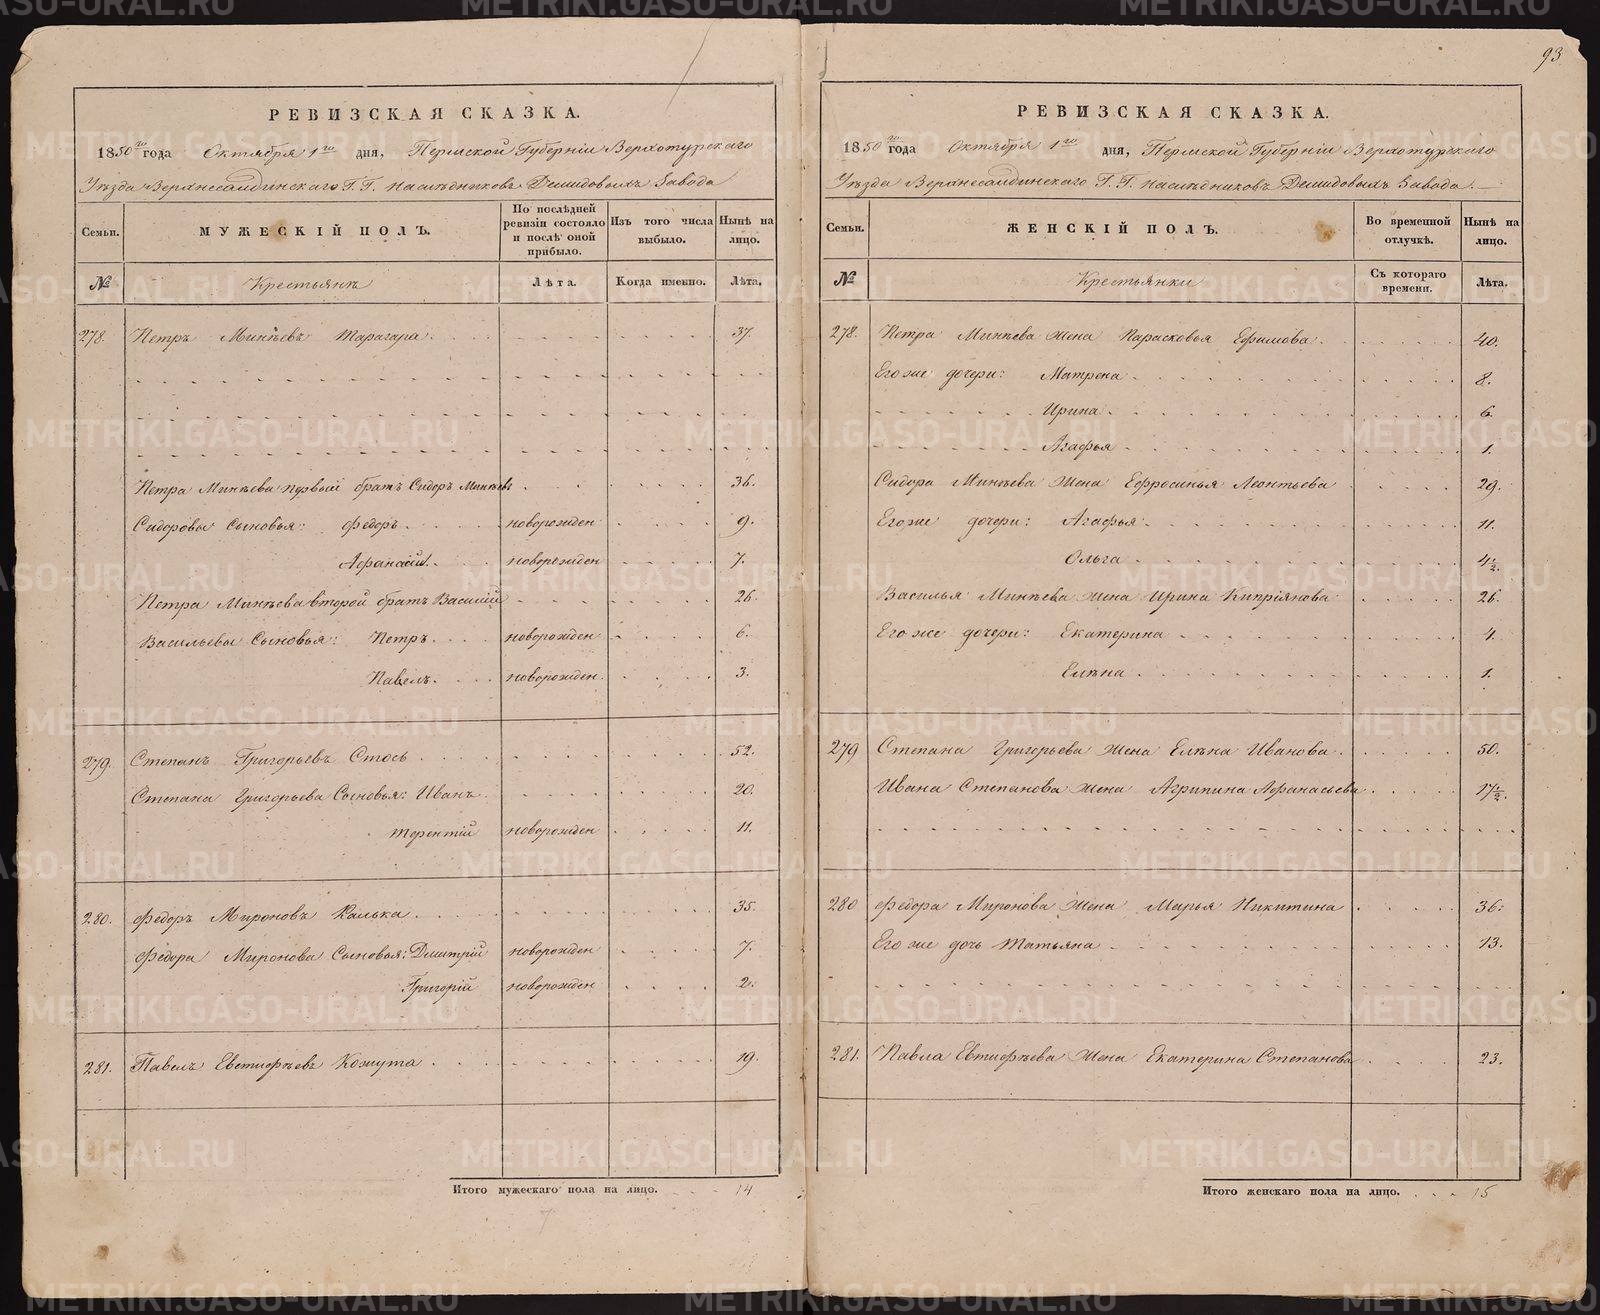 93
РЕВИЗСКАЯ СКАЗКА.
1850го года Октября 1го дня, Пермской Губерніи Верхотурскаго
Уѣзда Верхнесалдинскаго Г. Г. наслѣдниковъ Демидовыхъ Завода
Семьи.
МУЖЕСКІЙ ПОЛЪ.
По послѣдней ревизіи состояло и послѣ оной прибыло.
Изъ того числа выбыло.
Нынѣ на лицо.
№ Крестьянъ Лѣта. Когда именно. Лѣта.
278. Петръ Минѣевъ Тарагара. 37.
Петра Минѣева первый братъ Сидоръ Минѣевъ 36.
Сидоровы Сыновья: Федоръ новорожден 9.
Афанасій. новорожден 7.
Петра Минѣева второй братъ Василій 26.
Васильевы Сыновья: Петръ новорожден 6.
Павелъ новорожден 3.
279. Степанъ Григорьевъ Стось 52.
Степана Григорьева Сыновья: Иванъ 20.
Терентій новорожден 11.
280. Федоръ Мироновъ Калька 35.
Федора Миронова Сыновья: Дмитрій новорожден 7.
Григорій новорожден 2.
281. Павелъ Евтифѣевъ Кожута 19.
Итого мужескаго пола на лицо. 14
РЕВИЗСКАЯ СКАЗКА.
1850го года Октября 1го дня, Пермской Губерніи Верхотурскаго
Уѣзда Верхнесалдинскаго Г. Г. наслѣдниковъ Демидовыхъ Завода.
Семьи.
ЖЕНСКІЙ ПОЛЪ.
Во временной отлучкѣ.
Нынѣ на лицо.
№ Крестьянки Съ котораго времени. Лѣта.
278. Петра Минѣева жена Парасковья Ефимова 40.
Его же дочери: Матрена 8.
Ирина 6.
Агафья 1.
Сидора Минѣева жена Ефросинья Леонтьева 29.
Его же дочери: Агафья 11.
Ольга 4½.
Василья Минѣева жена Ирина Кипріянова 26.
Его же дочери: Екатерина 4.
Елѣна 1.
279 Степана Григорьева жена Елѣна Иванова 50.
Ивана Степанова жена Агрипина Афанасьева 17½.
280 Федора Миронова жена Марья Никитина 36.
Его же дочь Татьяна 13.
281. Павла Евтифѣева жена Екатерина Степанова 23.
Итого женскаго пола на лицо. 15
METRIKI.GASO-URAL.RU